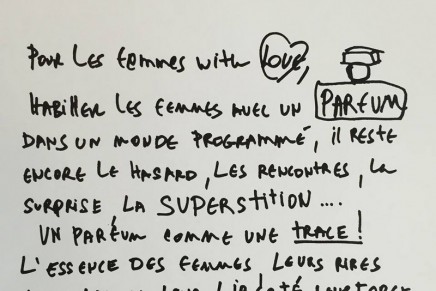 Pour les femmes with love,
Habiller les femmes avec un PARFUM
DANS UN MONDE PROGRAMMÉ, il RESTE
ENCORE LE HASARD, LES RENCONTRES, la
SURPRISE, LA SUPERSTITION ....
UN PARFUM COMME UNE TRACE!
L'ESSENCE DES FEMMES, LEURS RIRES